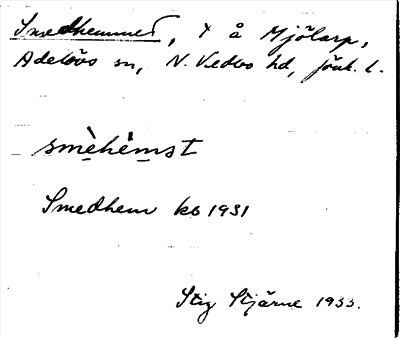 Smedhemmet, x å Mjölarp,
Adelövs sn, N. Vedbo hd, Jönk. l.
smèhèmst
Smedhem kb 1931
Stig Stjärne 1933.